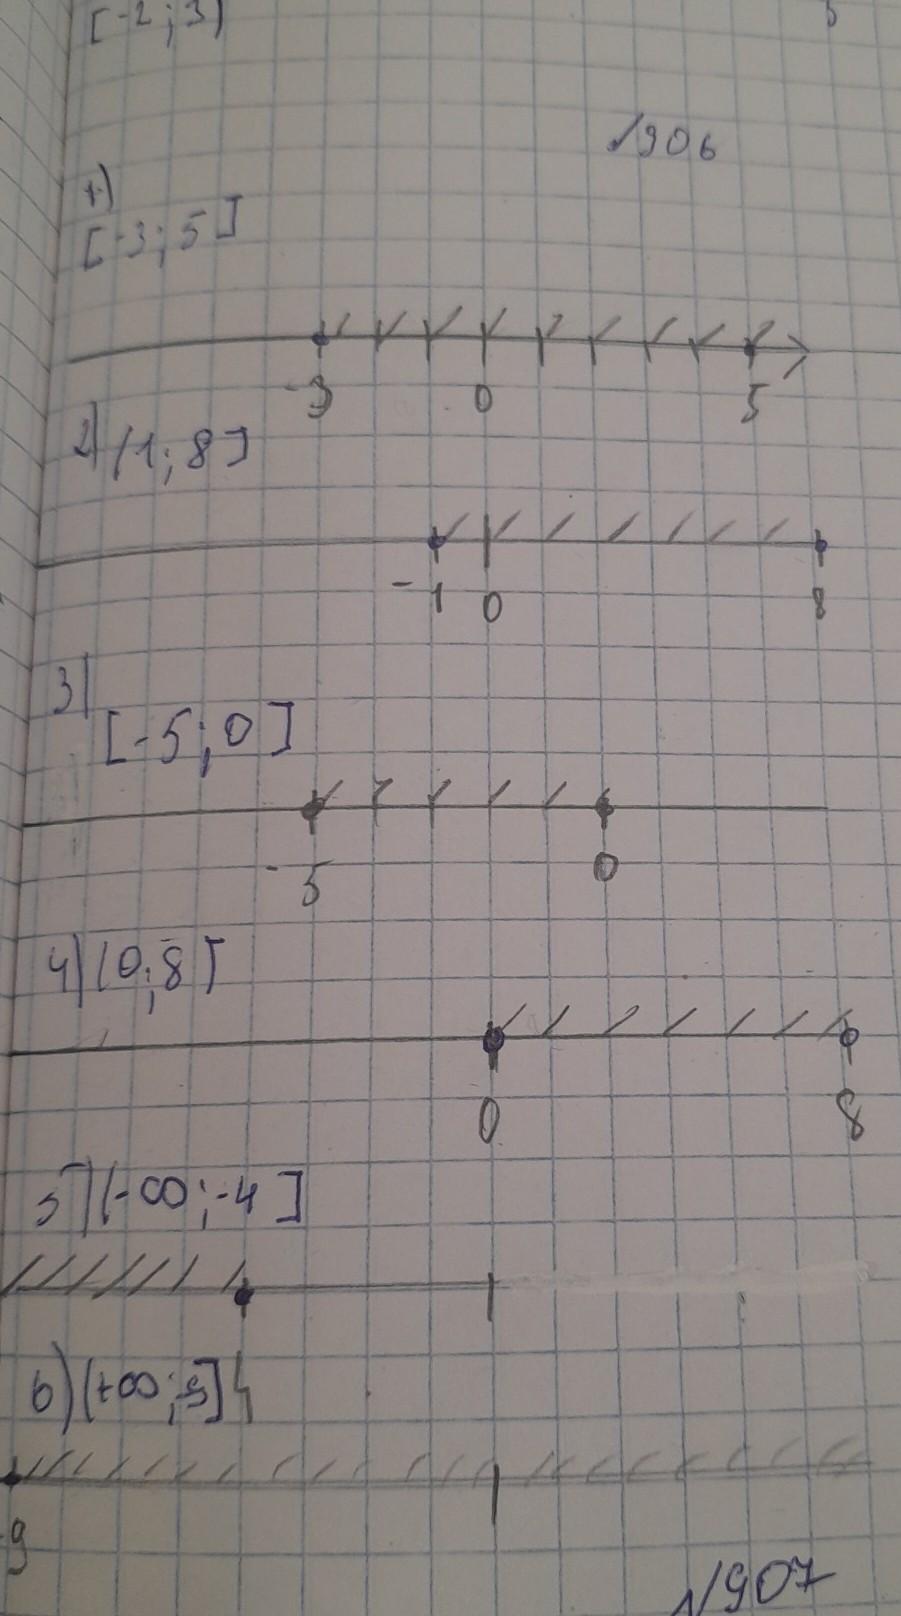 [-2; 3)
№906
1)
[-3; 5]
-3 0 5
2) (1; 8]
-1 0 8
3)
[-5; 0]
-5 0
4) (0; 8]
0 8
5) (-∞; -4]
6) (+∞; -9]
-9
№907